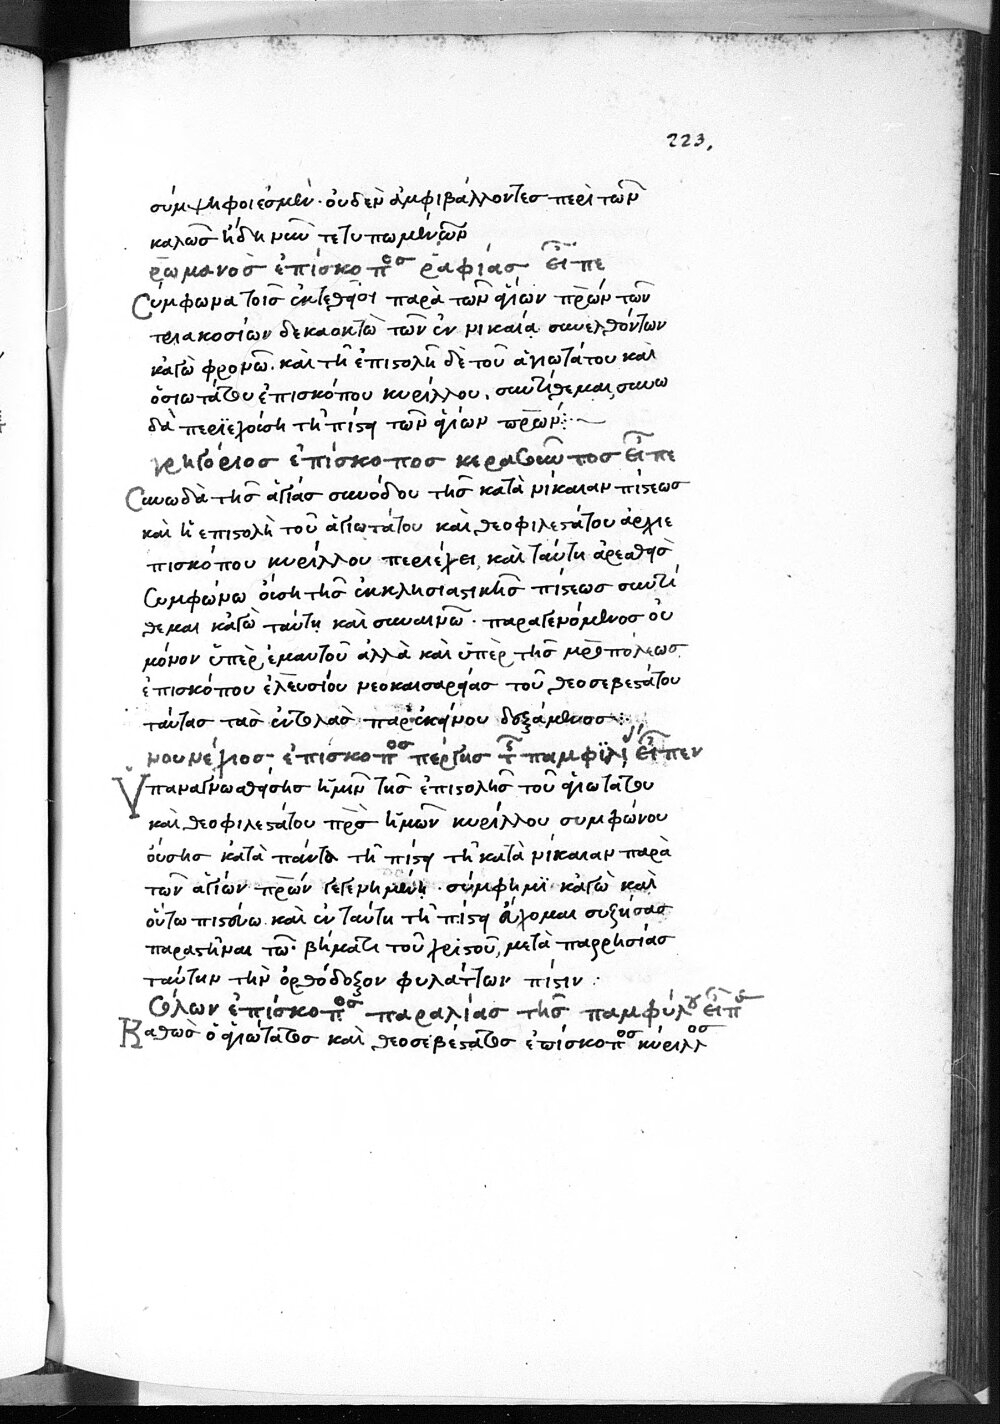 223,
σύμψηφοι ἐσμὲν· οὐδὲν ἀμφιβάλλοντες περὶ τῶν
καλῶς ἤδη νῦν τετυπωμένων
ῥωμανὸς ἐπίσκοπος ῥαφίας εἶπε
Σύμφωνα τοῖς ἐκτεθεῖσι παρὰ τῶν ἁγίων πρῶν τῶν
τριακοσίων δεκαοκτὼ τῶν ἐν νικαία συνελθόντων
κἀγὼ φρονῶ. καὶ τῆ ἐπιστολῆ δὲ τοῦ ἁγιωτάτου καὶ
ὁσιωτάτου ἐπισκόπου κυρίλλου, συντίθεμαι, συνω
δὰ περιεχούση τῆ πίστει τῶν ἁγίων πρων:
γρηγόριος ἐπίσκοπος κερασοῦντος εἶπε
Συνωδὰ τῆς ἁγίας συνόδου τῆς κατὰ νίκαιαν πίστεως
καὶ ἡ επιστολὴ τοῦ ἁγιωτάτου καὶ θεοφιλεστάτου ἀρχιε
πισκόπου κυρίλλου περιέχει, καὶ ταύτη ἀρεσθεὶς
Συμφώνω οὔση τῆς ἐκκλησιαστικῆς πίστεως συντί
θεμαι κἀγὼ ταύτη καὶ συναινῶ· παραγενόμενος οὐ
μόνον ὑπὲρ ἐμαυτοῦ ἀλλὰ καὶ ὑπὲρ τῆς μροπόλεως
ἐπισκόπου ἐλευσίου νεοκαισαρείας τοῦ θεοσεβεστάτου
ταύτας τὰς ἐντολὰς παρ' ἐκείνου δεξάμενος
νουνέχιος ἐπίσκοπος πέργης τῆς παμφϊλίας εἶπεν
Ὑπαναγνωσθείσης ἡμῖν τῆς ἐπιστολῆς τοῦ ἁγιωτάτου
καὶ θεοφιλεστάτου πρς ἡμῶν κυρίλλου συμφώνου
ούσης κατὰ πάντα τῆ πίστει τῆ κατὰ νίκαιαν παρὰ
τῶν ἁγίων πρων γεγενημένη· σύμφημϊ κἀγὼ καὶ
οὕτω πιστεύω καὶ ἐν ταύτη τῆ πίστει εὔχομαι συζήσας
παραστῆναι τῶ βήματι τοῦ χριστοῦ, μετὰ παρρησίας
ταύτην τὴν ὀρθόδοξον φυλάττων πίστιν :
Σόλων ἐπίσκοπος παραλίας τῆς παμφύλου εἶπε
Καθὼς ὁ ἁγιώτατος καὶ θεοσεβέστατος ἐπίσκοπος κύριλλος